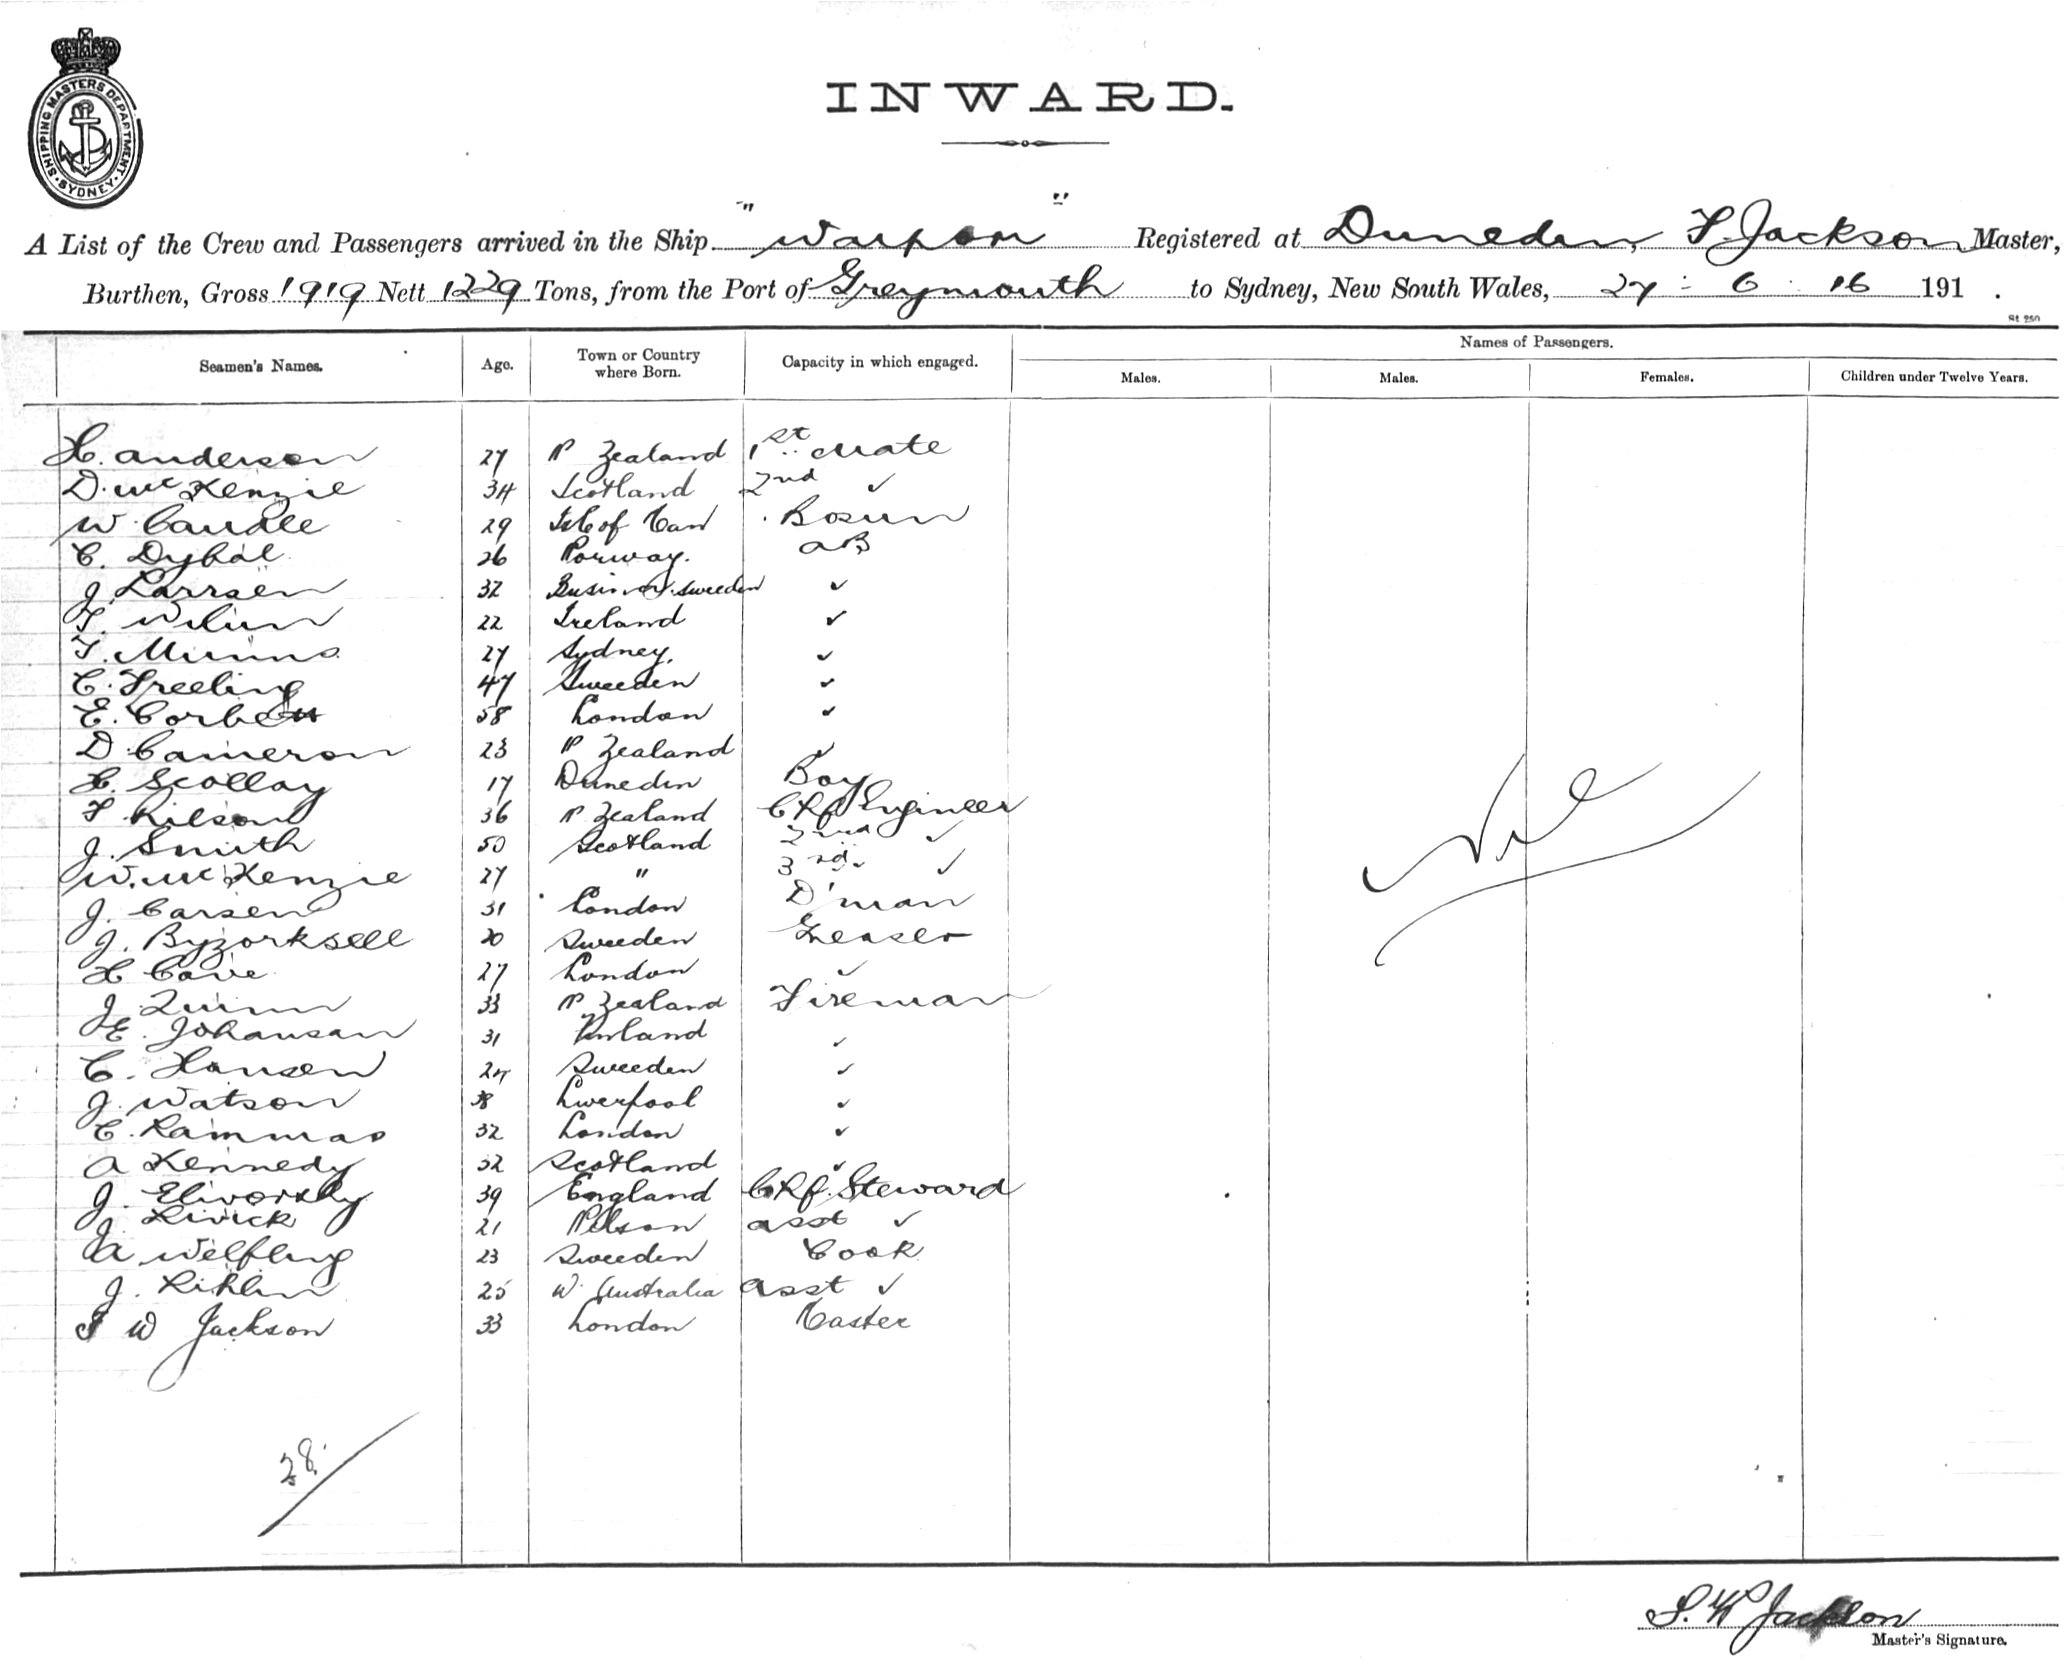 SHIPPING MASTERS DEPARTMENT SYDNEY
INWARD.
A List of the Crew and Passengers arrived in the Ship "Waipori" Registered at Dunedin, F. Jackson Master,
Burthen, Gross 1919 Nett 1229 Tons, from the Port of Greymouth to Sydney, New South Wales, 27 - 6 16 191 .
St 250
Seamen's Names. Age. Town or Country where Born. Capacity in which engaged. Names of Passengers.
Males. Males. Females. Children under Twelve Years.
H. Anderson 27 N Zealand 1st Mate
D. McKenzie 34 Scotland 2nd ✓
W. Caudle 29 Isle of Man Bosun
C. Dybal 26 Norway. AB
J. Larrsen 32 Sweeden ✓
T. 22 Ireland ✓
T. Munns 27 Sydney. ✓
C. Freeling 47 Sweeden ✓
E. Corbett 58 London ✓
D Cameron 23 N Zealand ✓
H. Scollay 17 Dunedin Boy
F Nilson 36 N Zealand Chf Engineer
J. Smith 50 Scotland 2nd ✓
W. McKenzie 27 " 3rd ✓
J. Carsen 31 London D'man
J. Byzorksell 20 Sweeden Greaser
H Cave 27 London ✓
J Quinn 33 N Zealand Fireman
E. Johansan 31 Finland ✓
C. Hansen 24 Sweeden ✓
J. Watson 38 Liverpool ✓
C. Lammas 32 London ✓
A Kennedy 32 Scotland ✓
J. Elivorsky 39 England Chf. Steward
J. Livick 21 Nelson asst ✓
A Welfling 23 Sweeden Cook
J. 25 W. Australia asst ✓
F W Jackson 33 London Master
Nil
28
F. W Jackson
Master's Signature.